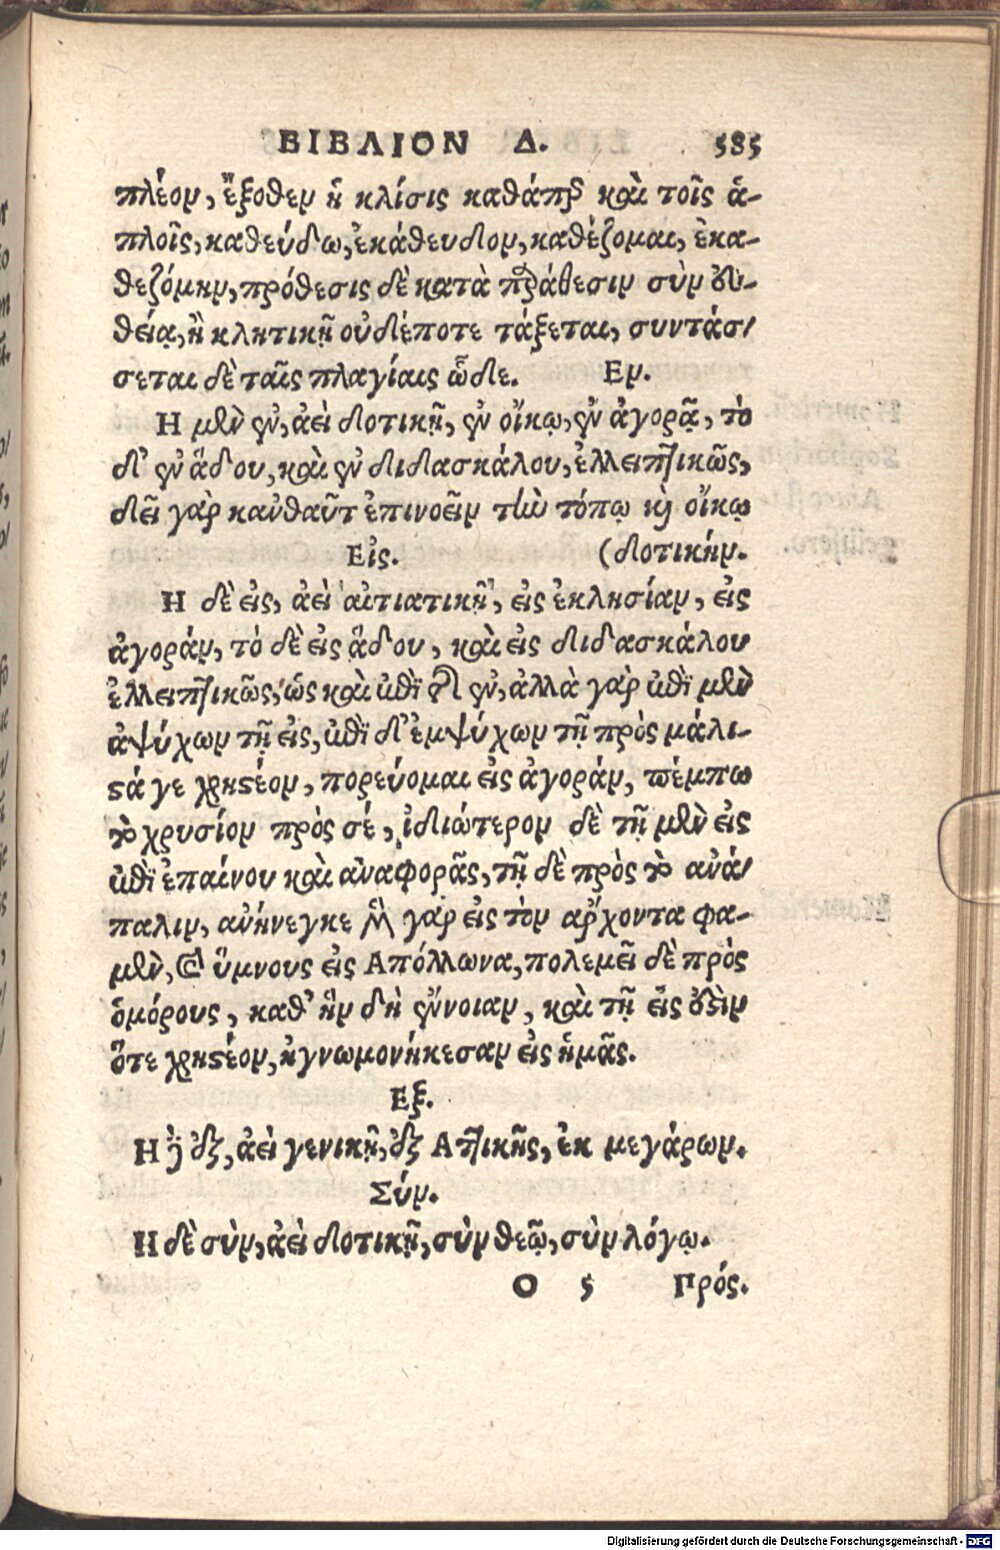 ΒΙΒΛΙΟΝ Δ. 585
πλέον, ἔξοθεν ἡ κλίσις καθάπερ καὶ τοῖς ἁ-
πλοῖς, καθεύδω, ἐκάθευδον, καθέζομαι, ἐκα-
θεζόμην, πρόθεσις δὲ κατὰ παράθεσιν σὺν εὐ-
θείᾳ, ἢ κλητικῇ οὐδέποτε τάξεται, συντάσ-
σεται δὲ ταῖς πλαγίαις ὧδε. Εν.
Η μὲν ἐν, ἀεὶ δοτικῇ, ἐν οἴκῳ, ἐν ἀγορᾷ, τὸ
δ' ἐν ἅδου, καὶ ἐν διδασκάλου, ἐλλειπτικῶς,
δεῖ γὰρ κανθαῦτ ἐπινοεῖν τὼ τόπῳ καὶ οἴκῳ
Εἰς. (δοτικήν.
Η δὲ εἰς, ἀεὶ αἰτιατικῇ, εἰς ἐκλησίαν, εἰς
ἀγοράν, τὸ δὲ εἰς ᾅδου, καὶ εἰς διδασκάλου
ἐλλειπτικῶς, ὡς καὶ ἐπὶ τῆς ἐν, ἀλλὰ γὰρ ἐπὶ μὲν
ἀψύχων τῇ εἰς, ἐπὶ δ' ἐμψύχων τῇ πρὸς μάλι-
στά γε χρηστέον, πορεύομαι εἰς ἀγοράν, πέμπω
τὸ χρυσίον πρὸς σέ, ἰδιώτερον δὲ τῇ μὲν εἰς
ἐπὶ ἐπαίνου καὶ ἀναφορᾶς, τῇ δὲ πρὸς τὸ ἀνά-
παλιν, ἀνήνεγκε μὲν γὰρ εἰς τὸν ἄρχοντα φα-
μὲν, καὶ ὕμνους εἰς Απόλλωνα, πολεμεῖ δὲ πρὸς
ὁμόρους, καθ' ἣν δὴ ἔννοιαν, καὶ τῇ εἰς ἐστὶν
ὅτε χρηστέον, ἠγνωμονήκεσαν εἰς ἡμᾶς.
Εξ.
Η δὲ ἐξ, ἀεὶ γενικῇ, ἐξ Αττικῆς, ἐκ μεγάρων.
Σύν.
Η δὲ σὺν, ἀεὶ δοτικῇ, σὺν θεῷ, σὺν λόγῳ.
Ο 5 Πρός.
Digitalisierung gefördert durch die Deutsche Forschungsgemeinschaft - DFG